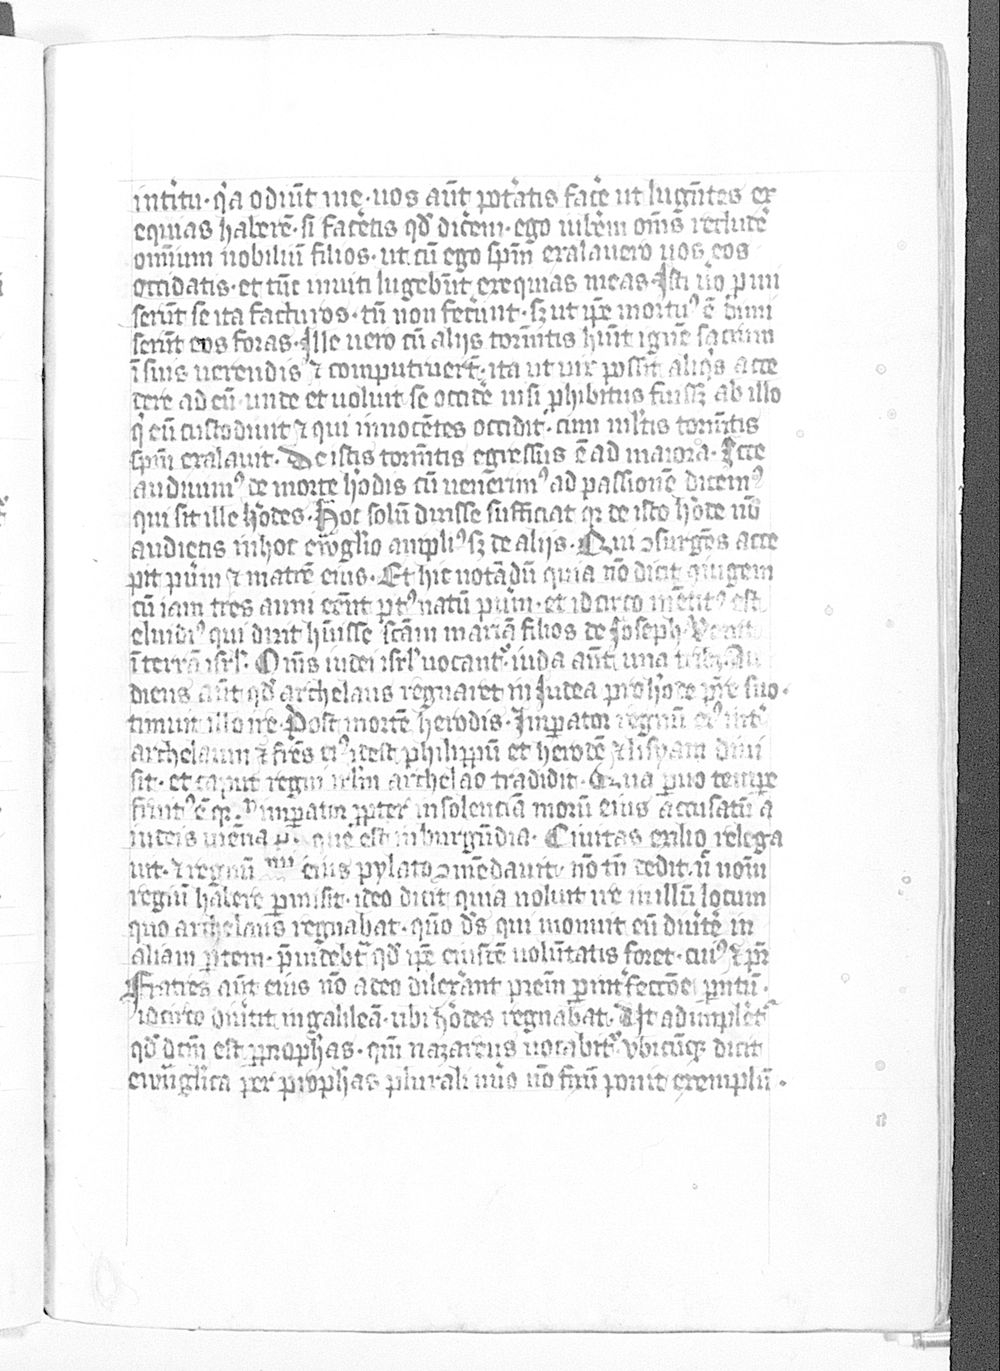 intˀitu · qˀa odiūt me · uos aūt potˀatis facˀe ut lugētes ex
equias haberē · si facˀetis qd̄ dicˀem · ego iubˀem om̄s recludˀe
omnium nobiliū filios · ut cū ego spm̄ exalauero uos eos
occidatis · et tūc inuiti lugebūt exequias meas · Isti uˀo pˀmi
serūt se ita facturos · tn̄ non fecˀunt · sꝫ ut ip̄e mortuꝰ ē dimi
serūt eos foras · Ille uero cū alijs tormˀtis hūit ignē sacrum
ī suis uerendis ⁊ computruert̄ · ita ut uix possit aliqˀs acce
dere ad eū · unde et uoluit se occidˀe nisi ꝓhibitus fuissꝫ ab illo
qˀ eū custodiuit ⁊ qui innocētes occidit · cum multis tormˀtis
spm̄ exalauit · De istis tormˀtis egressus ē ad maiora · Acce
audiuimꝰ de morte hˀodis cū uenerimꝰ ad passionē dicemꝰ
qui sit ille hˀodes · Hoc solū dixisse sufficiat qꝛ de isto hˀode nō
audietis in hoc ewˀglio ampliꝰ sꝫ de alijs · Qui ↄsurgēs acce
pit puˀm ⁊ matrē eius · Et hic notādū quia nō dicit ꝯiugem
cū iam tres anni eēnt pˀtꝰ natū puˀm · et idcirco mētitꝰ est
eluidiꝰ qui dixit hūisse scām mariā filios de Joseph
ī terrā isrl̄ · Om̄s iudei isrl̄ uocantˀ · iuda aūt una tribꝰ Au
diens aūt qd̄ archelaus regnaret in Judea pro hˀode pr̄e suo ·
timuit illo ire · Post mortē herodis · Imperator regnū
archelaum ⁊ fr̄es eiꝰ idest philippū et herodē ⁊ lisyam diui
sit · et caput regni archelao tradidit · Qua pˀuo tempe
imperator ꝓpter insolenciā morū eius accusatū a
iudeis que est in burgūdia · Ciuitas exilio relega
uit · ⁊ regnū eius pylato ↄmēdauit nō tn̄ dedit · n̄ nom̄
regiū habere pˀmisit · ideo dicit quia noluit ire nullū locum
quo archelaus regnabat · quō dˀs qui monuit eū diuˀtē in
aliam pˀtem · pˀuidebt̄ qd̄ ip̄e eiusdē uolūtatis foret · cuiꝰ ⁊ pr̄
Fratres aūt eius nō adeo dilexˀant prem̄ pˀintˀfectōe pˀntū ·
idcirco diuˀtit in galileā · ubi hˀodes regnabat · Ut adimplˀetˀ
qd̄ dcm̄ est ꝑ ꝓphˀas · qm̄ nazareus uocabitˀ · Vbicūqꝫ dicit
ewˀglica per ꝓphˀas plurali nuˀo nō suū ponit exemplū ·